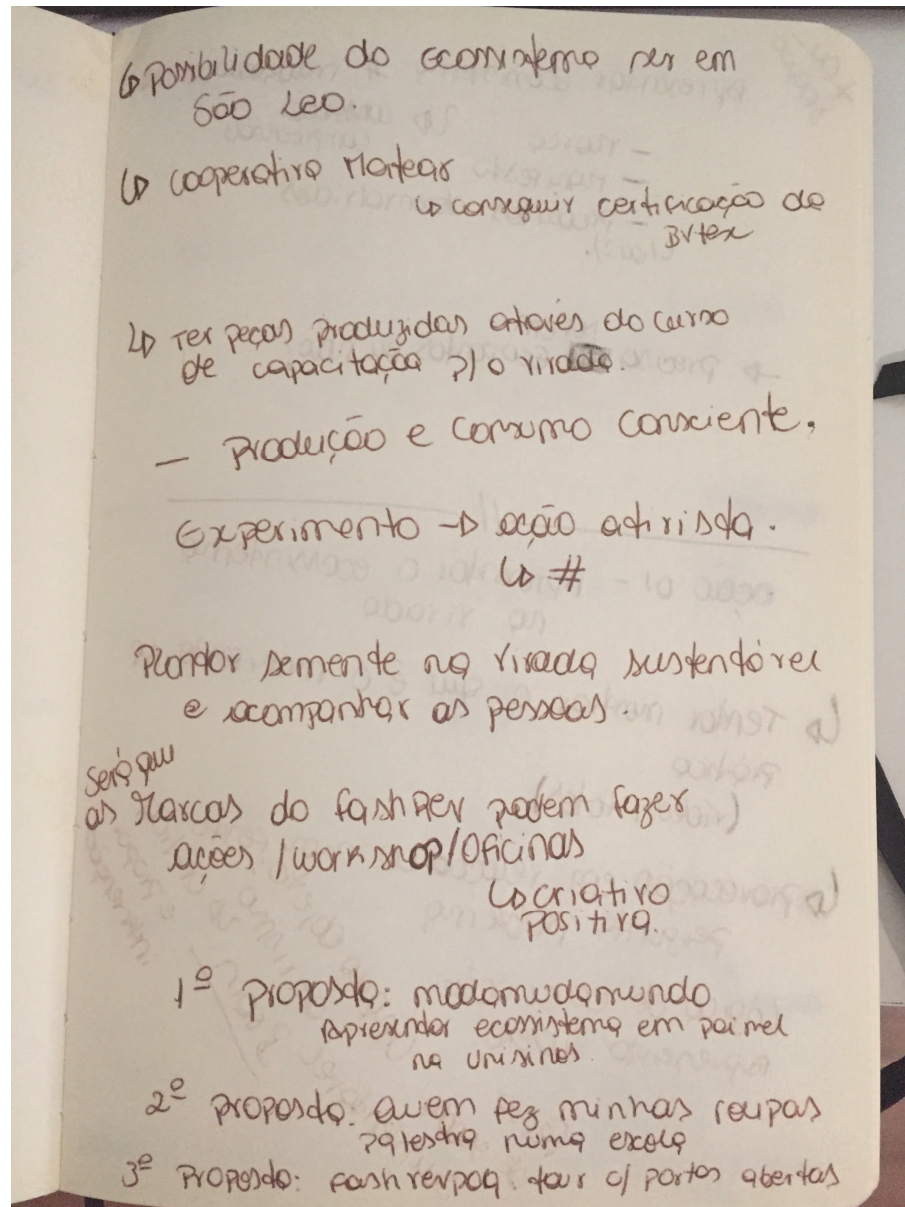 ↳ possibilidade do ecossistema ser em
São Leo.
↳ cooperativa Martear
↳ conseguir certificação da
BVtex
↳ Ter peças produzidas através do curso
de capacitação p/ o virada.
– Produção e consumo consciente.
Experimento → ação ativista.
↳ #
Plantar semente na virada sustentável
e acompanhar as pessoas.
Será que
as Marcas do fashRev podem fazer
ações / workshop / oficinas
↳ criativo
positiva.
1ª proposta: modamudamundo
Apresentar ecossistema em painel
na unisinos.
2ª proposta: Quem fez minhas roupas
palestra numa escola
3ª Proposta: fashrevpoa. tour c/ portas abertas